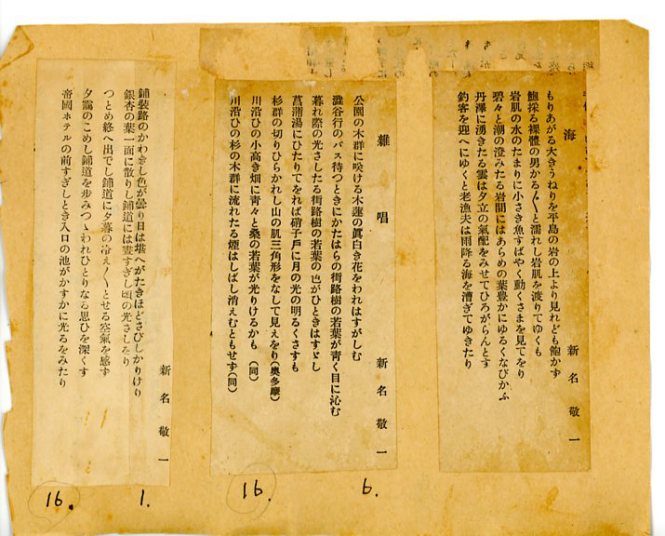 海
新名敬一
もりあがる大きうねりを平島の岩の上より見れども飽かず
鮑採る裸體の男かる〴〵と濡れし岩肌を渡りてゆくも
岩肌の水のたまりに小さき魚すばやく動くさまを見てをり
碧々と潮の澄みたる岩間にはあらめの葉豊かにゆるくなびかふ
丹澤に湧きたる雲は夕立の氣配をみせてひろがらんとす
釣客を迎へにゆくと老漁夫は雨降る海を漕ぎてゆきたり
雜唱
新名敬一
公園の木群に咲ける木蓮の眞白き花をわれはすがしむ
澁谷行のバス待つときにかたはらの街路樹の若葉が青く目に沁む
暮れ際の光さしたる街路樹の若葉の色がひときはすゞし
菖蒲湯にひたりてをれば硝子戸に月の光の明るくさすも
杉群の切りひらかれし山の肌三角形をなして見えをり(奥多摩)
川沿ひの小高き畑に青々と桑の若葉が光りけるかも (同)
川沿ひの杉の木群に流れたる煙はしばし消えむともせず(同)
新名敬一
鋪装路のかわきし色が曇り日は堪へがたきほどさびしかりけり
銀杏の葉一面に散りし鋪道には晝すぎし頃の光さしをり
つとめ終へ出でし鋪道に夕暮の冷え〴〵とせる空氣を感ず
夕靄のこめし鋪道を歩みつゝわれひとりなる思ひを深くす
帝國ホテルの前すぎしとき入口の池がかすかに光るをみたり
6.
16.
1.
16.